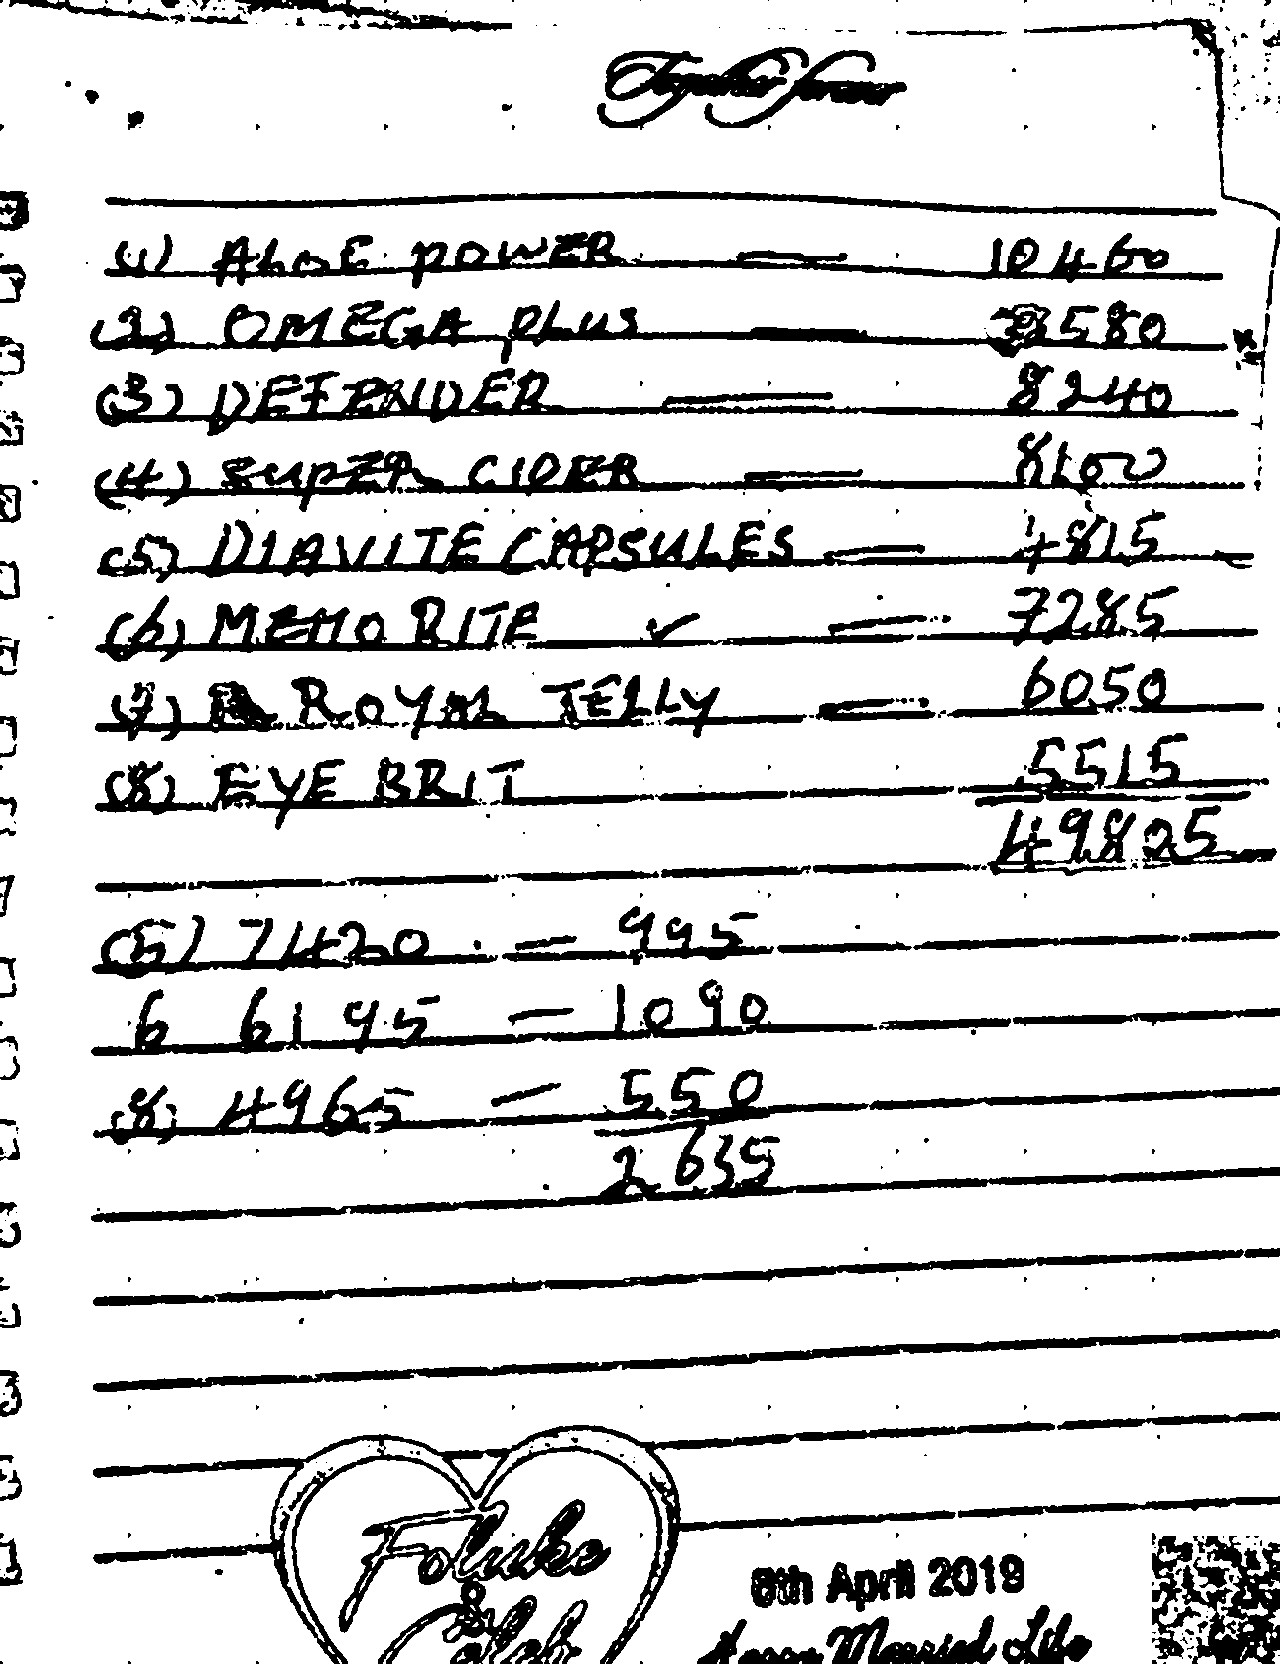 Together Forever
(1) ALOE POWER — 10460
(2) OMEGA PLUS — 580
(3) DEFENDER — 8240
(4) SUPER CIDER — 8100
(5) DIAVITE CAPSULES — 4815
(6) MEMORITE ✓ — 7285
(7) ROYAL JELLY — 6050
(8) EYE BRIT 5515
49825
(5) 7420 — 995
6 6195 — 1090
(8) 4965 — 550
2635
Foluke
&
6th April 2019
Happy Married Life